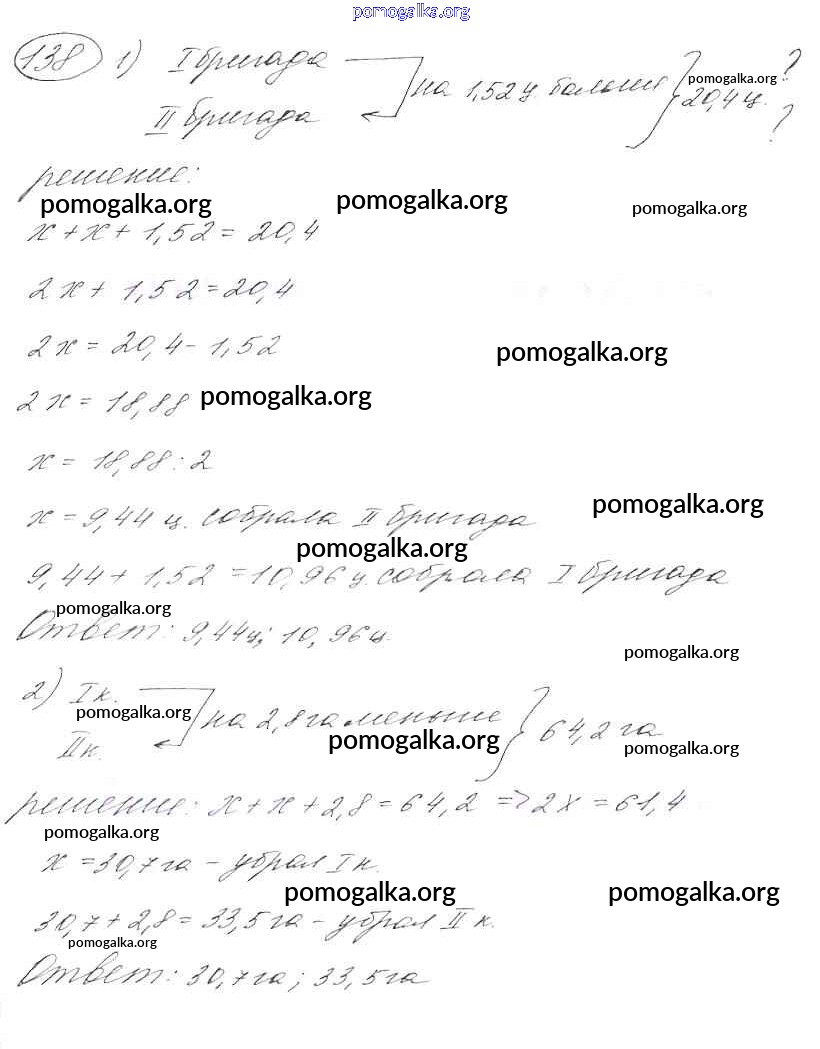 pomogalka.org
138 1) I бригада
на 1,52 ц. больше
pomogalka.org ?
20,4 ц.
II бригада ?
решение:
pomogalka.org pomogalka.org pomogalka.org
x + x + 1,52 = 20,4
2x + 1,52 = 20,4
2x = 20,4 - 1,52
pomogalka.org
2x = 18,88 pomogalka.org
x = 18,88 : 2
pomogalka.org
x = 9,44 ц. собрала II бригада
pomogalka.org
9,44 + 1,52 = 10,96 ц. собрала I бригада
pomogalka.org
Ответ: 9,44ц; 10,96 ц.
pomogalka.org
2) I к.
pomogalka.org на 2,8 га меньше 64,2 га
II к. pomogalka.org pomogalka.org
решение: x + x + 2,8 = 64,2 => 2x = 61,4
pomogalka.org
x = 30,7 га - убрал I к.
pomogalka.org pomogalka.org
30,7 + 2,8 = 33,5 га - убрал II к.
pomogalka.org
Ответ: 30,7 га; 33,5 га